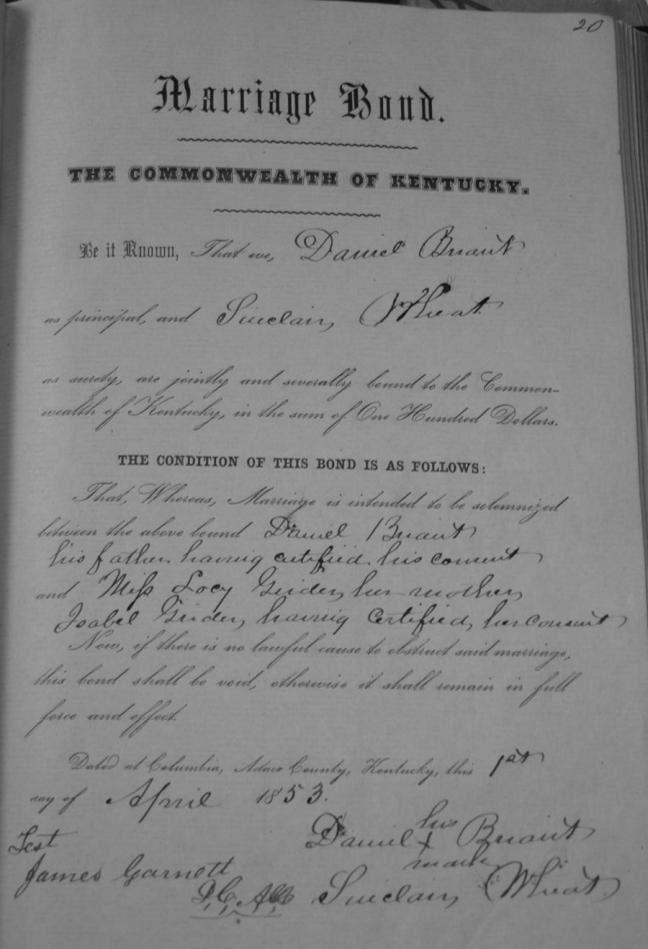 20
Marriage Bond.
THE COMMONWEALTH OF KENTUCKY.
Be it Known, That we, Daniel Briant
as principal, and Sinclair Wheat
as surety, are jointly and severally bound to the Common-
wealth of Kentucky, in the sum of One Hundred Dollars.
THE CONDITION OF THIS BOND IS AS FOLLOWS:
That, Whereas, Marriage is intended to be solemnized
between the above bound Daniel Briant
his father having certified his consent
and Miss Locy Grider, her mother,
Isabel Grider, having certified, her consent
Now, if there is no lawful cause to obstruct said marriage,
this bond shall be void, otherwise it shall remain in full
force and effect.
Dated at Columbia, Adair County, Kentucky, this 1st
day of April 1853.
Test
Daniel his x mark Briant
James Garnett
Sinclair Wheat